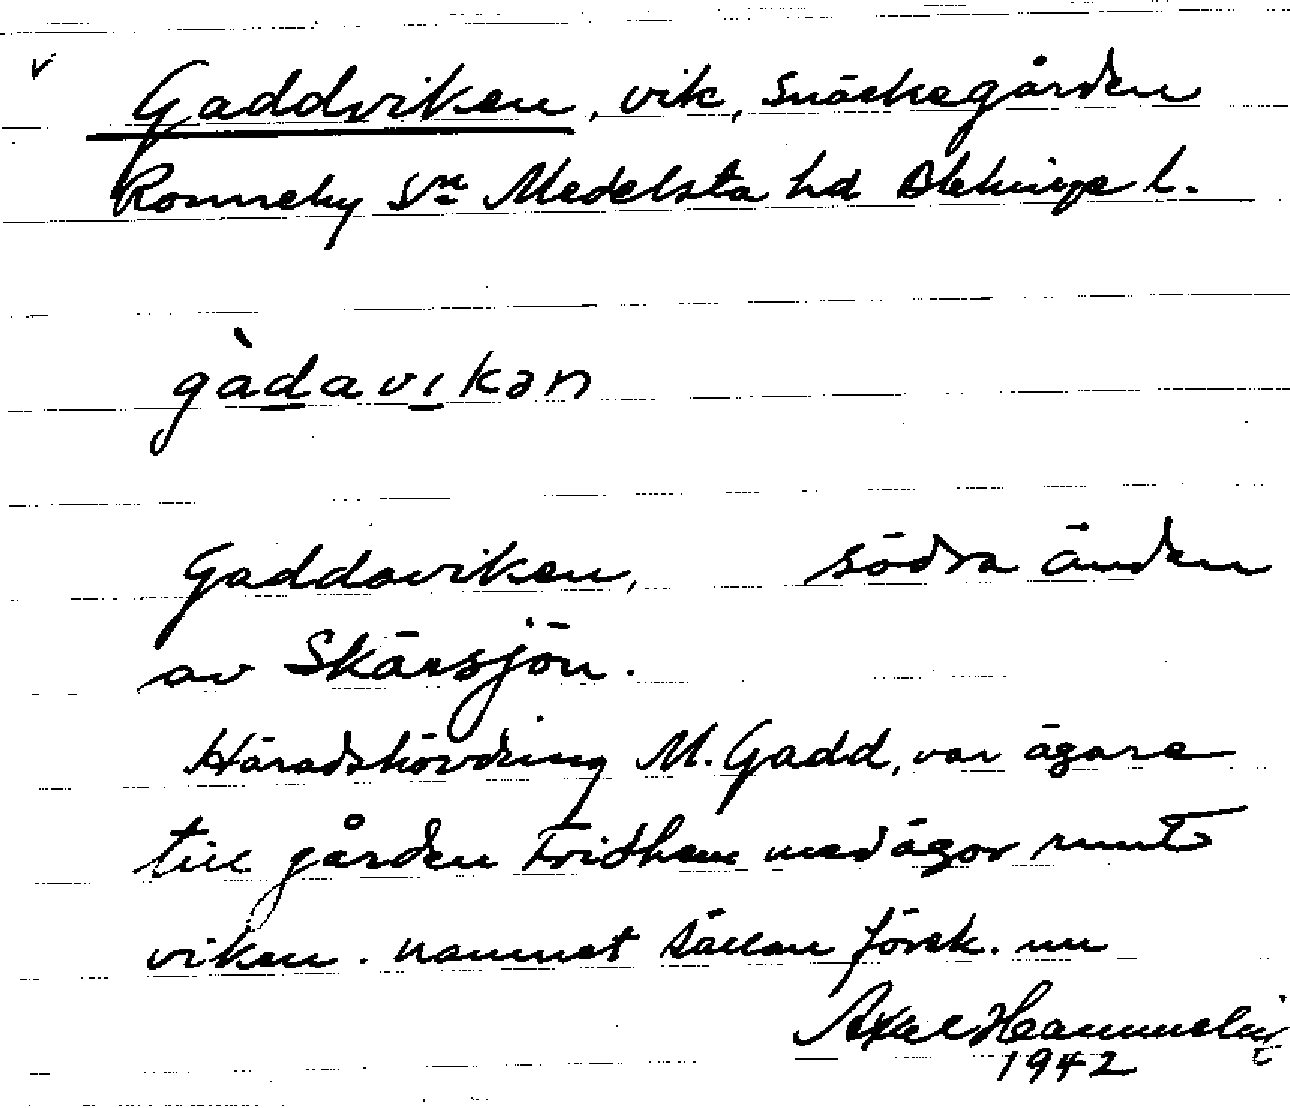 v
Gaddviken, vik, Snäckegården
Ronneby sn Medelsta hd Blekinge l.
gàdavıkən
Gaddaviken, södra änden
av Skärsjön.
Häradshövding M. Gadd, var ägare
till gården Fridhem med ägor runt
viken. namnet sällan förek. nu
Axel
1942